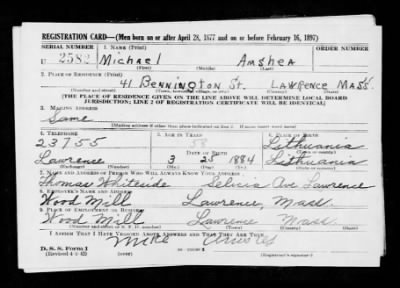 REGISTRATION CARD—(Men born on or after April 28, 1877 and on or before February 16, 1897)
SERIAL NUMBER 1. NAME (Print) ORDER NUMBER
U 2582 MICHAEL Amshea
(First) (Middle) (Last)
2. PLACE OF RESIDENCE (Print)
41 BENNINGTON St. LAWRENCE MASS.
(Number and street) (Town, township, village, or city) (County) (State)
[THE PLACE OF RESIDENCE GIVEN ON THE LINE ABOVE WILL DETERMINE LOCAL BOARD
JURISDICTION; LINE 2 OF REGISTRATION CERTIFICATE WILL BE IDENTICAL]
3. MAILING ADDRESS
Same
[Mailing address if other than place indicated on line 2. If same insert word same]
4. TELEPHONE 5. AGE IN YEARS 6. PLACE OF BIRTH
23755 58 Lithuania
DATE OF BIRTH
Lawrence 3 25 1884 Lithuania
(Exchange) (Number) (Mo.) (Day) (Yr.) (State or country)
7. NAME AND ADDRESS OF PERSON WHO WILL ALWAYS KNOW YOUR ADDRESS
Thomas Whiteside Ave Lawrence
8. EMPLOYER'S NAME AND ADDRESS
Wood Mill Lawrence, Mass.
9. PLACE OF EMPLOYMENT OR BUSINESS
Wood Mill Lawrence Mass.
(Number and street or R. F. D. number) (Town) (County) (State)
I AFFIRM THAT I HAVE VERIFIED ABOVE ANSWERS AND THAT THEY ARE TRUE.
Mike
D. S. S. Form 1
(Revised 4-1-42) (over) (Registrant's signature)